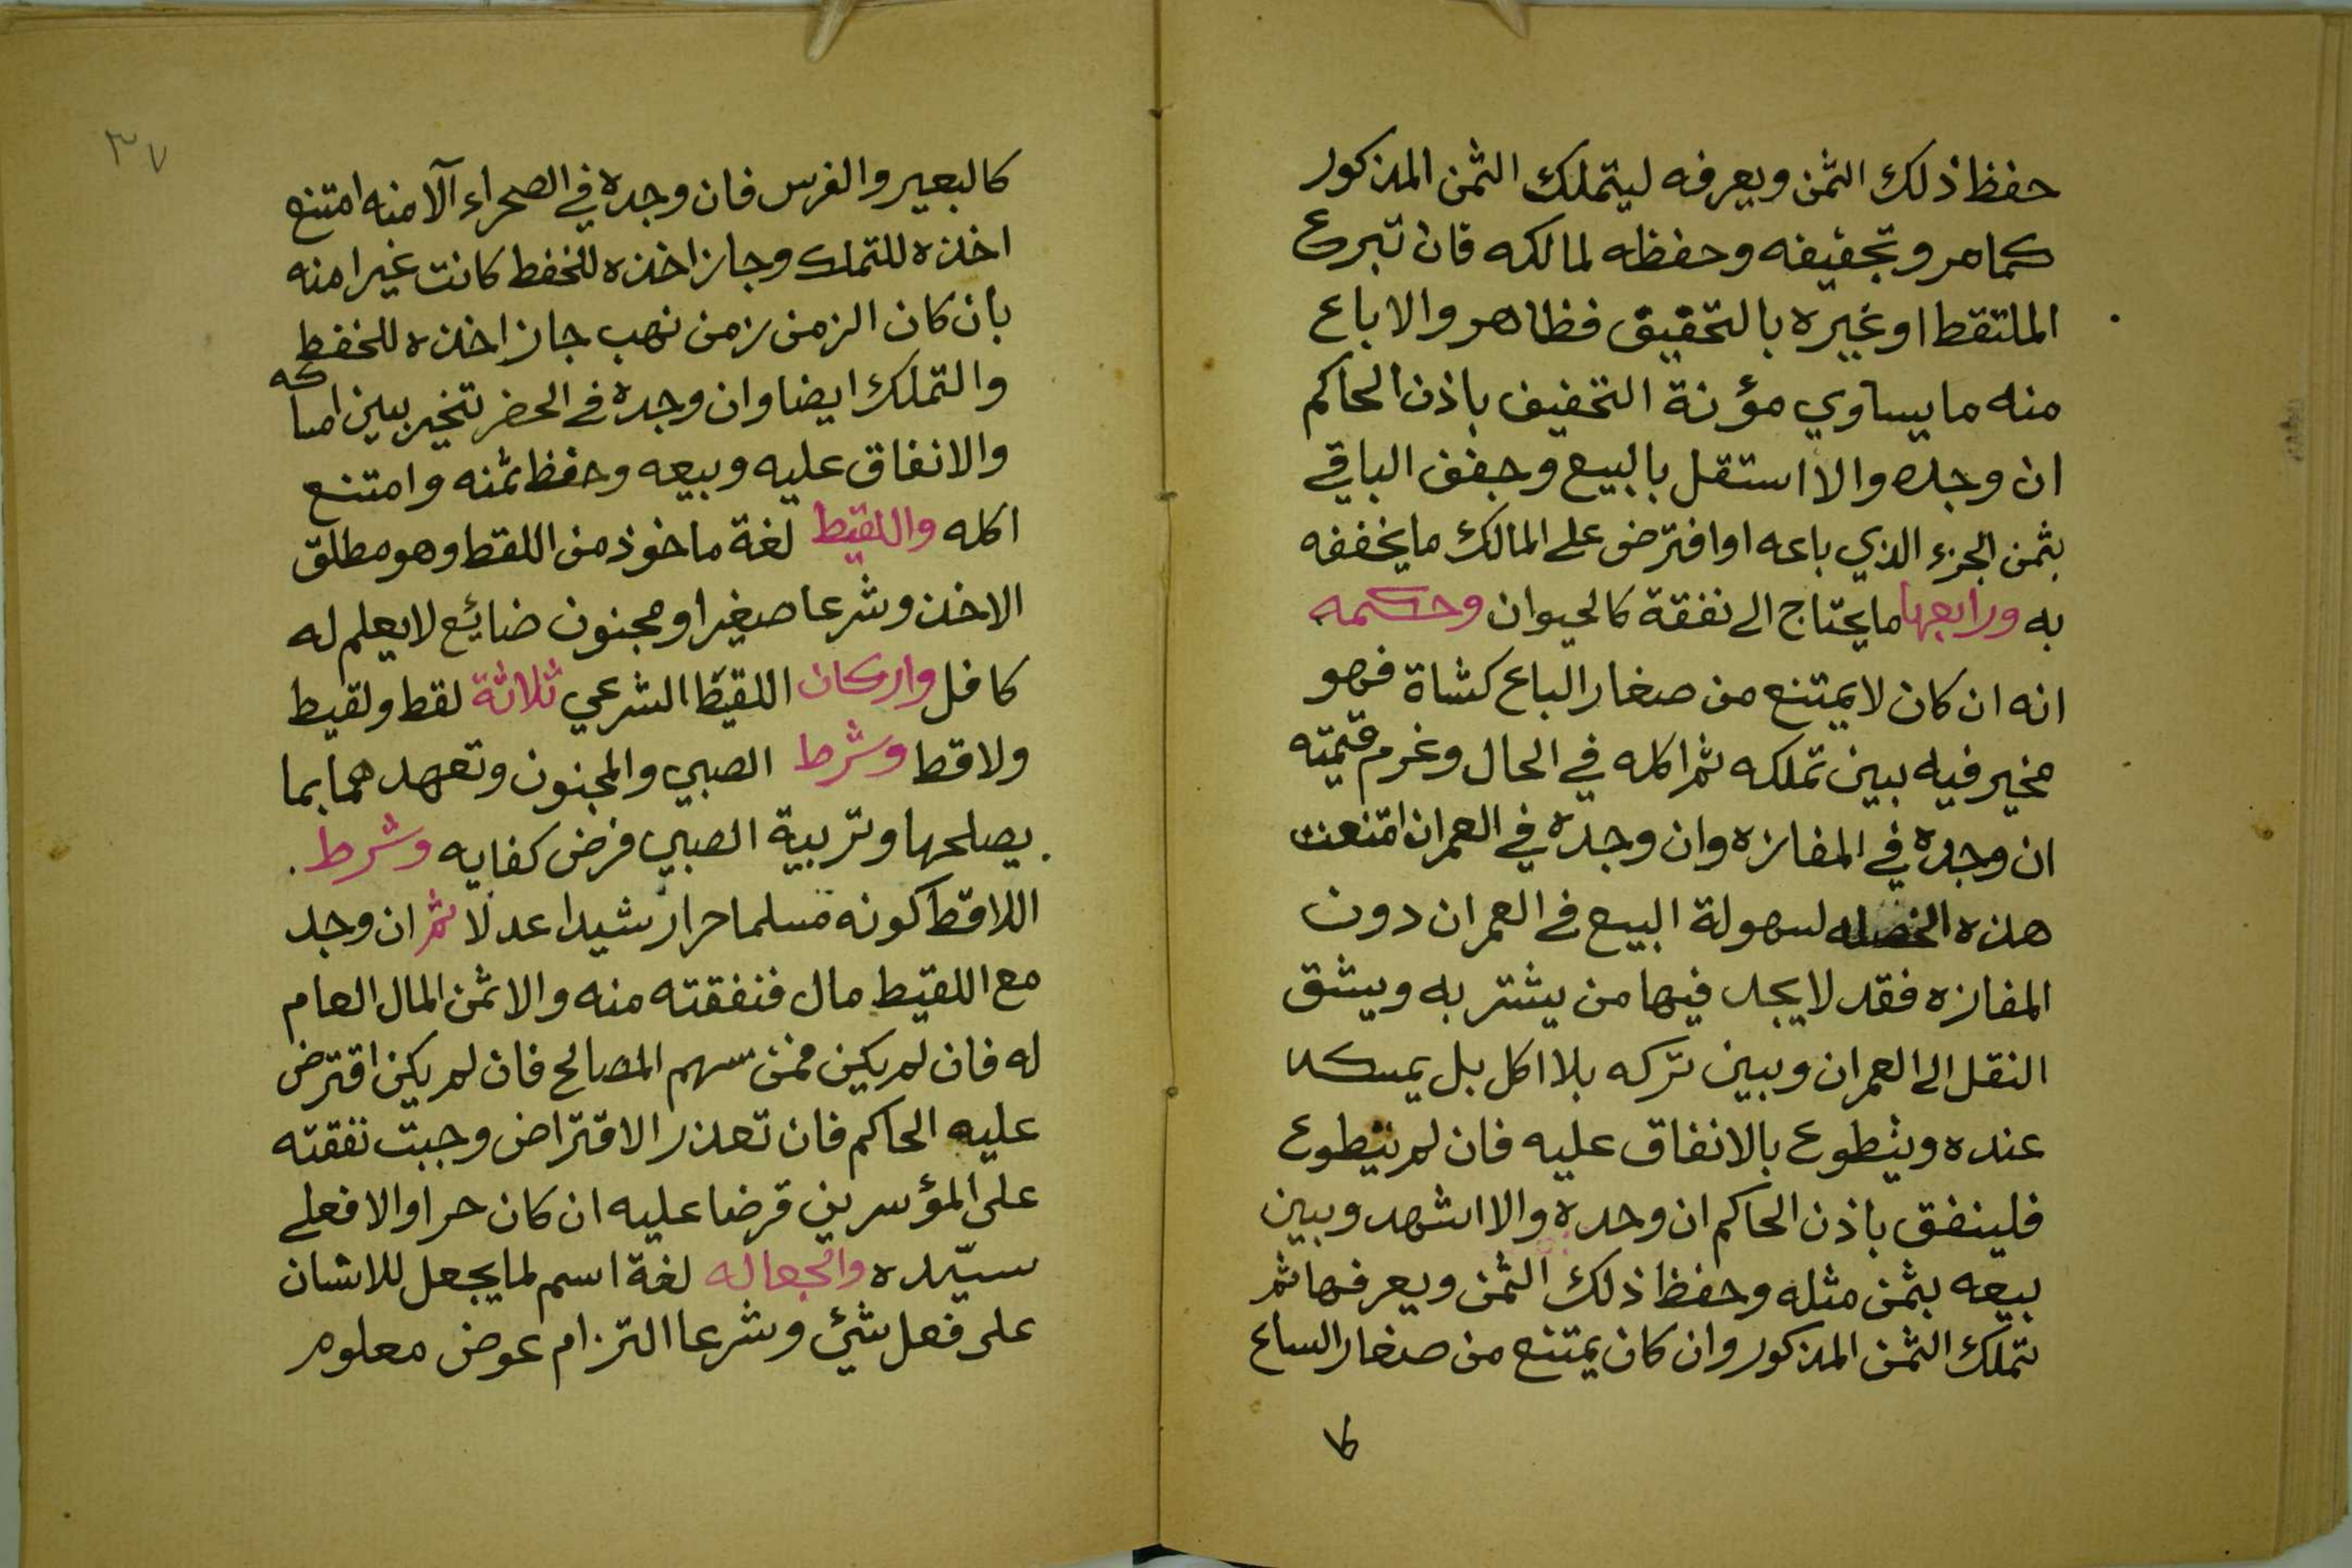 حفظ ذلك الثمن ويعرفه ليتملك الثمن المذكور
كمامر وتجفيفه وحفظه لمالكه فان تبرع
الملتقط او غيره بالتحقيق فظاهر والا باع
منه ما يساوي مؤنة التخفيف باذن الحاكم
ان وجده والا استقل بالبيع وجفف الباقي
بثمن الجزء الذي باعه او افترض على المالك ما يخففه
به ورابعها ما يحتاج الى نفقة كالحيوان وحكمه
انه ان كان لا يمتنع من صغار الباع كشاة فهو
مخير فيه بين تملكه ثم اكله في الحال وغرم قيمته
ان وجده في المفازه وان وجده في العمران امتنعت
هذه الخصله لسهولة البيع في العمران دون
المفازه فقد لا يجد فيها من يشتر به ويشق
النقل الى العمران وبين تركه بلا اكل بل يمسكه
عنده ويتطوع بالانفاق عليه فان لم يتطوع
فلينفق باذن الحاكم ان وجده والا اشهد وبين
بيعه بثمن مثله وحفظ ذلك الثمن ويعرفها ثم
تملك الثمن المذكور وان كان يمتنع من صغار الساع
كا
٣٧
كالبعير والفرس فان وجده في الصحراء الآمنه امتنع
اخذه للتملك وجاز اخذه للخفط كانت غير امنه
بان كان الزمن زمن نهب جاز اخذه للخفط
والتملك ايضا وان وجده في الحضر تتخير بين امساكه
والانفاق عليه وبيعه وحفظ ثمنه وامتنع
اكله واللقيط لغة ماخوذ من اللقط وهو مطلق
الاخذ وشرعا صغير او مجنون ضائع لا يعلم له
كافل واركان اللقيط الشرعي ثلاثة لقط ولقيط
ولاقط وشرط الصبي والمجنون وتعهد هما بما
يصلحها وتربية الصبي فرض كفايه وشرط
اللاقط كونه مسلما حرا رشيدا عدلا ثم ان وجد
مع اللقيط مال فنفقته منه والا ثمن المال العام
له فان لم يكن فمن سهم المصالح فان لم يكن اقترض
عليه الحاكم فان تعذر الاقتراض وجبت نفقته
على المؤسرين قرضا عليه ان كان حرا والا فعلى
سيّده والجعاله لغة اسم لما يجعل للانسان
على فعل شئ وشرعا التزام عوض معلوم